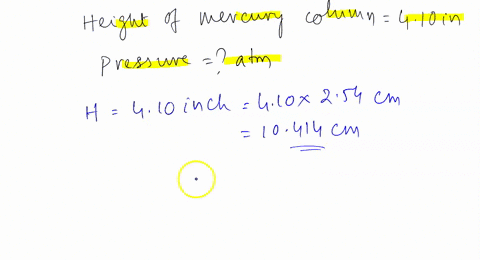 Height of mercury column = 4.10 in
Pressure = ? atm
H = 4.10 inch = 4.10 × 2.54 cm
= 10.414 cm